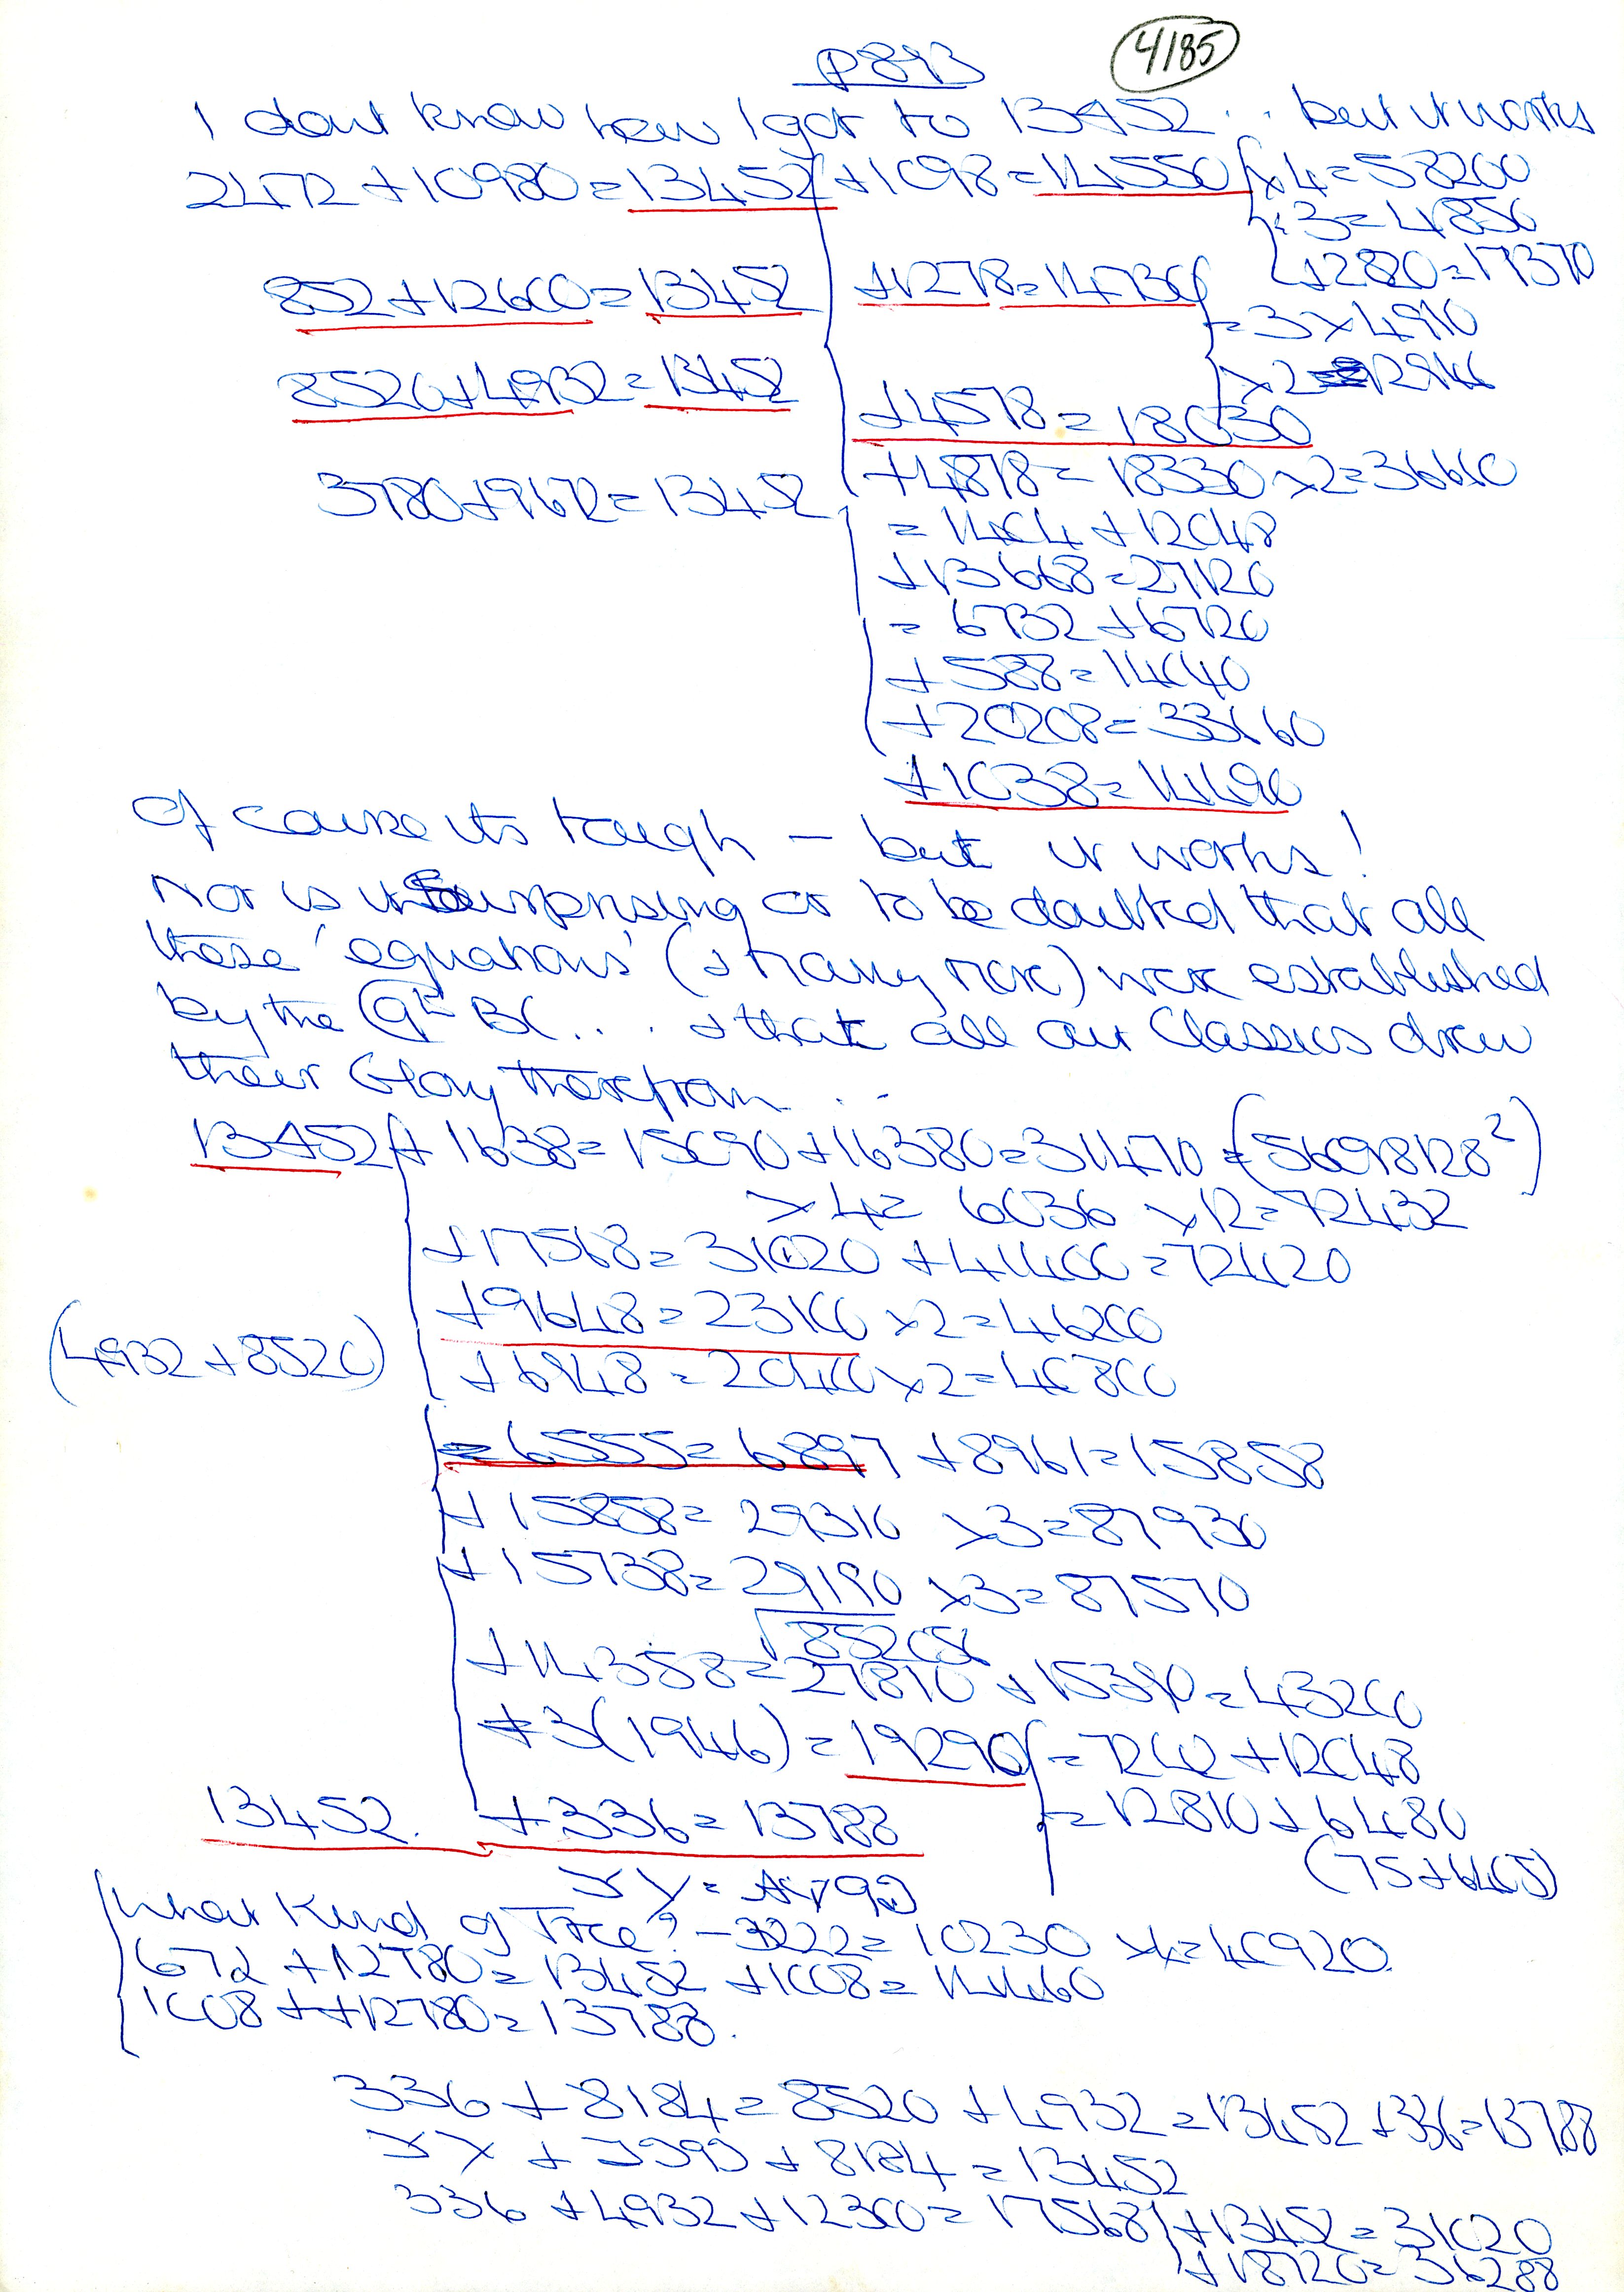 P893
4185
I dont know how I got to 13452 . . but it works
2472 + 10980 = 13452 + 1098 = 14550 x 4 = 58200
÷ 3 = 4850
+ 2820 = 17370
852 + 12600 = 13452 + 1278 = 14730
= 3 x 4910
x 2 = 29460
8520 + 4932 = 13452
+ 4578 = 18030
+ 4878 = 18330 x 2 = 36660
3780 + 9672 = 13452
= 1404 + 12048
+ 13668 = 27120
= 6732 + 6720
+ 588 = 14040
+ 20208 = 33660
+ 1038 = 14490
Of cause its tough – but it works!
Nor is it surprising or to be doubted that all
these 'equations' (+ many more) were established
by the 9th BC . . . + that all our Classics drew
their Glory therefrom . .
13452 + 1638 = 15090 + 16380 = 31470 = (5609/8128²)
x 4 = 6036 x 12 = 72432
+ 17568 = 31020 + 41400 = 72420
+ 9648 = 23100 x 2 = 46200
(4932 + 8520)
+ 6948 = 20400 x 2 = 40800
= 6555 = 6897 + 8961 = 15858
+ 15858 = 29310 x 3 = 87930
+ 15738 = 29190 x 3 = 87570
√852056
+ 14358 = 27810 + 15390 = 43200
+ 3(1946) = 19290 = 7242 + 12048
= 12810 + 6480
(75 + 6405)
13452. + 336 = 13788
What Kind of Tree? – 3222 = 10230 x 4 = 40920
672 + 12780 = 13452 + 1008 = 14460
1008 + + 12780 = 13788.
336 + 8184 = 8520 + 4932 = 13452 + 336 = 13788
+ 8184 = 13452
336 + 4932 + 12300 = 17568 + 13452 = 31020
+ 18720 = 36288